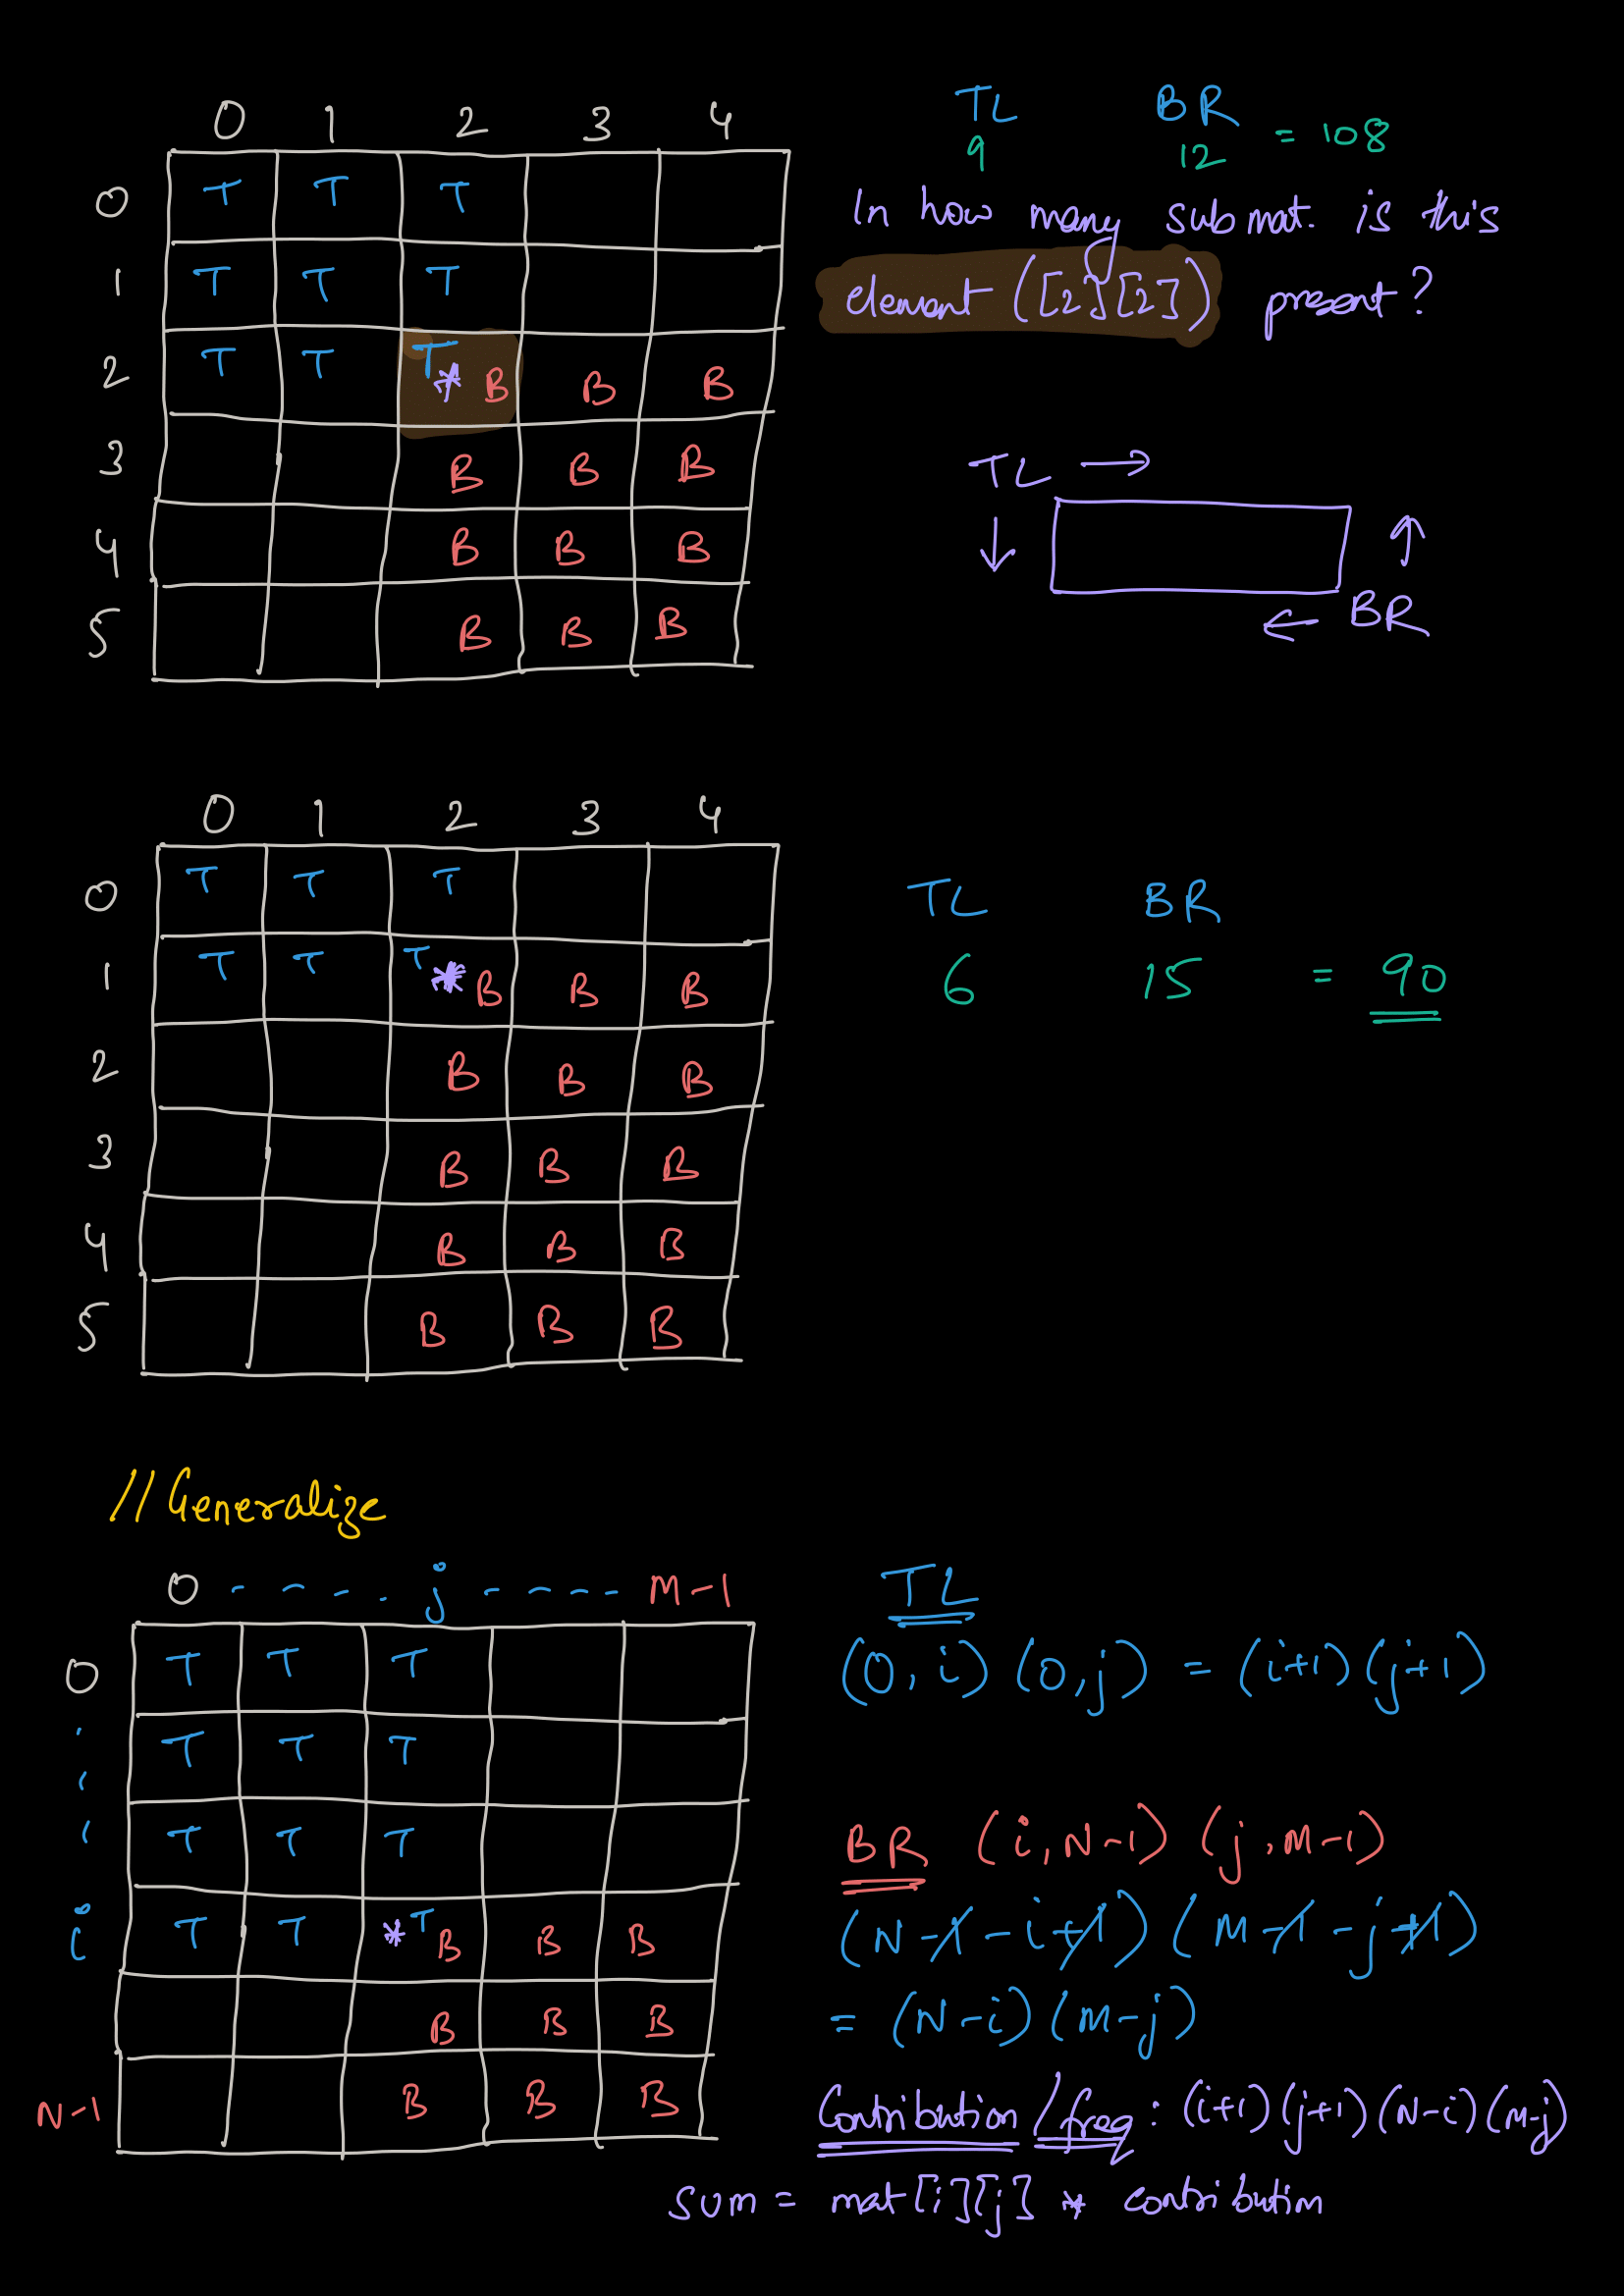 0 1 2 3 4
0 T T T
1 T T T
2 T T T * B B B
3 B B B
4 B B B
5 B B B
TL BR
9 12 = 108
In how many submat. is this
element ([2][2]) present?
TL →
↓ ↑
← BR
0 1 2 3 4
0 T T T
1 T T T * B B B
2 B B B
3 B B B
4 B B B
5 B B B
TL BR
6 15 = 90
// Generalize
0 - - - . . j - - - - - M-1
0 T T T
T T T
T T T
i T T * T B B B
B B B
N-1 B B B
TL
(0, i) (0, j) = (i+1) (j+1)
BR (i, N-1) (j, M-1)
(N-1-i+1) (M-1-j+1)
= (N-i) (M-j)
Contribution / freq : (i+1) (j+1) (N-i) (M-j)
sum = mat[i][j] * contribution